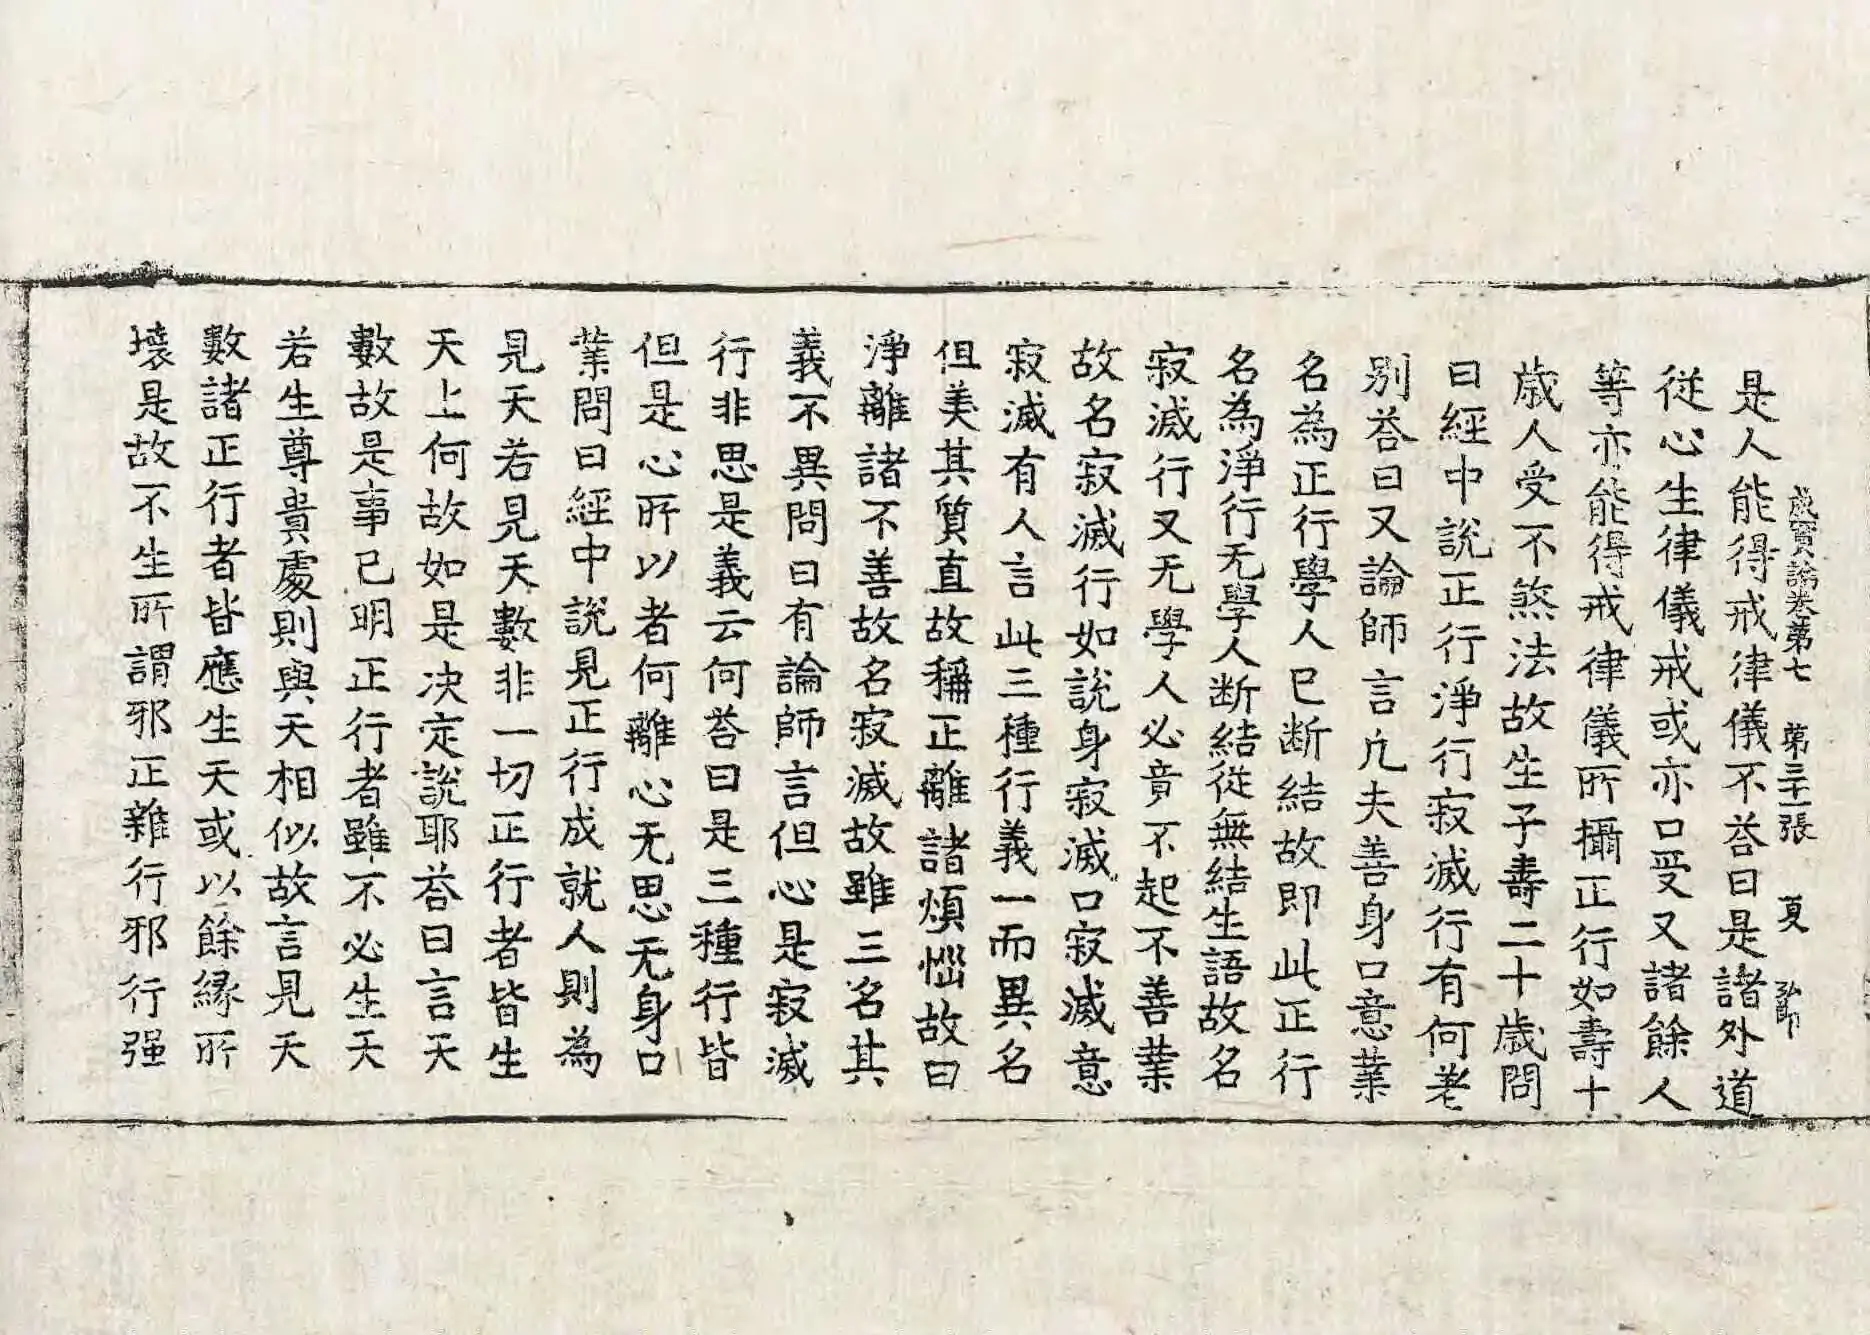 成實論卷第七　第三十一張　夏　弘節
是人能得戒律儀不荅曰是諸外道
從心生律儀戒或亦口受又諸餘人
等亦能得戒律儀所攝正行如壽十
歲人受不煞法故生子壽二十歲問
曰經中說正行淨行寂滅行有何差
別荅曰又論師言凡夫善身口意業
名為正行學人已斷結故即此正行
名為淨行无學人斷結從無結生語故名
寂滅行又无學人必竟不起不善業
故名寂滅行如說身寂滅口寂滅意
寂滅有人言此三種行義一而異名
但美其質直故稱正離諸煩惱故曰
淨離諸不善故名寂滅故雖三名其
義不異問曰有論師言但心是寂滅
行非思是義云何荅曰是三種行皆
但是心所以者何離心无思无身口
業問曰經中說見正行成就人則為
見天若見天數非一切正行者皆生
天上何故如是决定說耶荅曰言天
數故是事已明正行者雖不必生天
若生尊貴處則與天相似故言見天
數諸正行者皆應生天或以餘緣所
壞是故不生所謂邪正雜行邪行强